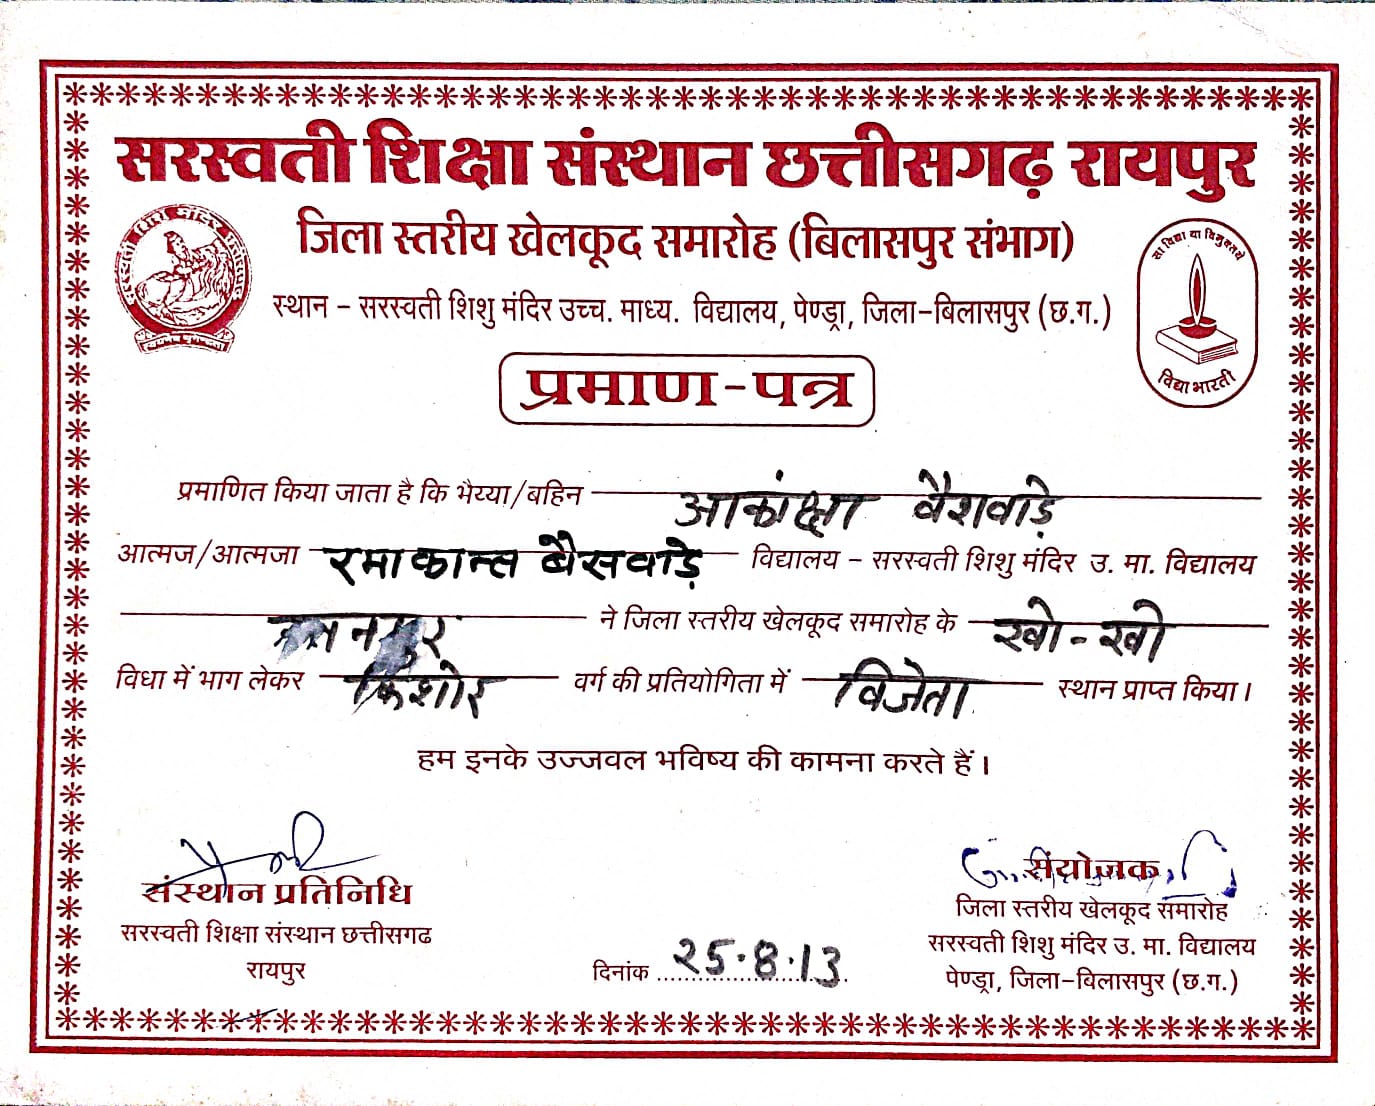 सरस्वती शिक्षा संस्थान छत्तीसगढ़ रायपुर
जिला स्तरीय खेलकूद समारोह (बिलासपुर संभाग)
स्थान - सरस्वती शिशु मंदिर उच्च. माध्य. विद्यालय, पेण्ड्रा, जिला-बिलासपुर (छ.ग.)
सा विद्या या विमुक्तये
विद्या भारती
प्रमाण-पत्र
प्रमाणित किया जाता है कि भैय्या/बहिन आकांक्षा वैशवाड़े
आत्मज/आत्मजा रमाकान्त बैसवाड़े विद्यालय - सरस्वती शिशु मंदिर उ. मा. विद्यालय
रतनपुर ने जिला स्तरीय खेलकूद समारोह के खो-खो
विधा में भाग लेकर किशोर वर्ग की प्रतियोगिता में विजेता स्थान प्राप्त किया।
हम इनके उज्जवल भविष्य की कामना करते हैं।
संस्थान प्रतिनिधि
सरस्वती शिक्षा संस्थान छत्तीसगढ
रायपुर
दिनांक 25.8.13
संयोजक
जिला स्तरीय खेलकूद समारोह
सरस्वती शिशु मंदिर उ. मा. विद्यालय
पेण्ड्रा, जिला-बिलासपुर (छ.ग.)